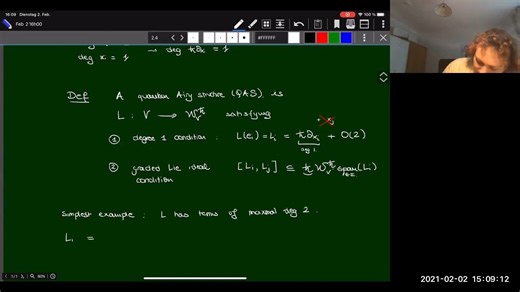 16:09 Dienstag 2. Feb.
100 %
Feb. 2 16h00
2.4
#FFFFFF
deg x = 1 → deg ħ∂x = 1
Def A quantum Airy structure (QAS) is
L : V → W_V^ħ satisfying
① degree 1 condition : L(e_i) = L_i = ħ∂x_i + O(2)
deg 1.
② graded Lie ideal [L_i, L_j] ⊆ ħ W_V^ħ span(L_i)
condition
Simplest example : L has terms of maximal deg 2.
L_i =
1/1
80%
2021-02-02 15:09:12